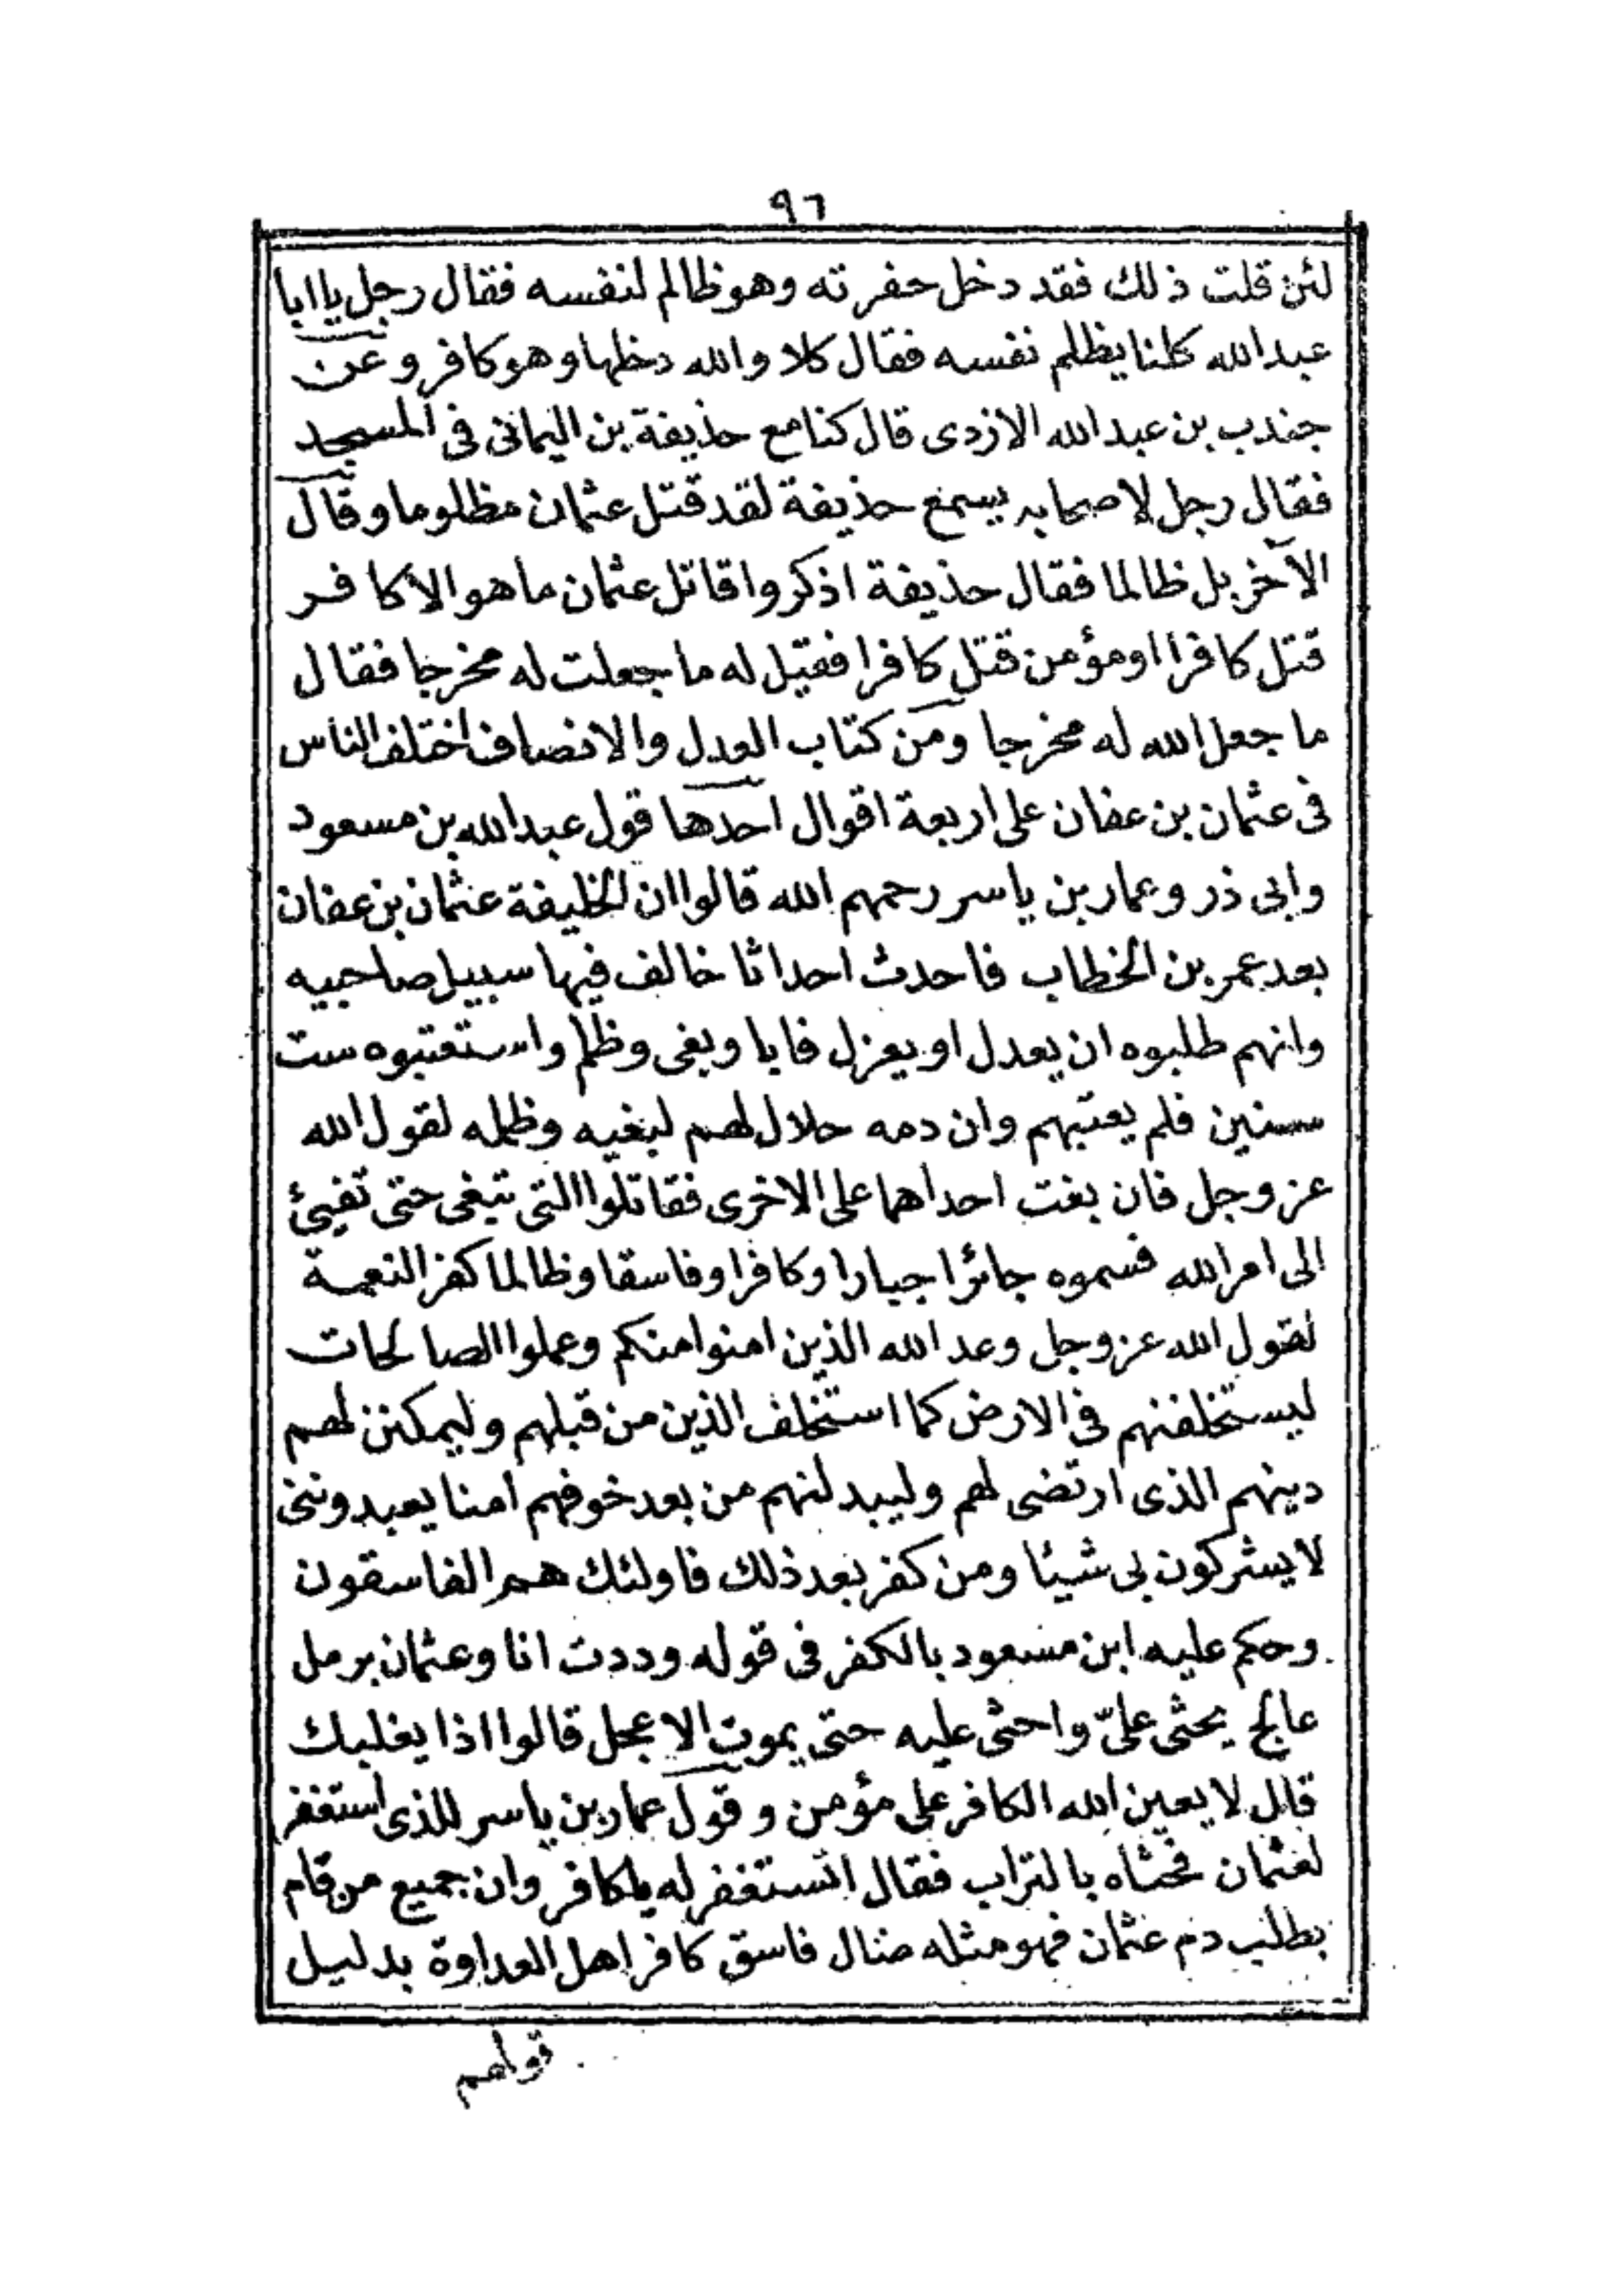 ٩٦
لئن قلت ذلك فقد دخل حفرته وهو ظالم لنفسه فقال رجل يا ابا
عبد الله كلنا يظلم نفسه فقال كلا والله دخلها وهو كافر وعن
جندب بن عبد الله الازدى قال كنا مع حذيفة بن اليمانى فى المسجد
فقال رجل لاصحابه يسمع حذيفة لقد قتل عثمان مظلوما وقال
الآخر بل ظالما فقال حذيفة اذكروا قاتل عثمان ما هو الا كافر
قتل كافرا او مؤمن قتل كافرا فقيل له ما جعلت له مخرجا فقال
ما جعل الله له مخرجا ومن كتاب العدل والانصاف اختلف الناس
فى عثمان بن عفان على اربعة اقوال احدها قول عبد الله بن مسعود
وابى ذر وعمار بن ياسر رحمهم الله قالوا ان الخليفة عثمان بن عفان
بعد عمر بن الخطاب فاحدث احداثا خالف فيها سبيل صاحبيه
وانهم طلبوه ان يعدل او يعزل فابا وبغى وظلم واستعتبوه ست
سنين فلم يعتبهم وان دمه حلال لهم لبغيه وظلمه لقول الله
عز وجل فان بغت احداهما على الاخرى فقاتلوا التى تبغى حتى تفيئ
الى امر الله فسموه جائرا جبارا وكافرا وفاسقا وظالما كفر النعمة
لقول الله عز وجل وعد الله الذين امنوا منكم وعملوا الصالحات
ليستخلفنهم فى الارض كما استخلف الذين من قبلهم وليمكنن لهم
دينهم الذى ارتضى لهم وليبدلنهم من بعد خوفهم امنا يعبدوننى
لا يشركون بى شيئا ومن كفر بعد ذلك فاولئك هم الفاسقون
وحكم عليه ابن مسعود بالكفر فى قوله وددت انا وعثمان برمل
عالج يحثى علىّ واحثى عليه حتى يموت الاعجل قالوا اذا يغلبك
قال لا يعين الله الكافر على مؤمن وقول عمار بن ياسر للذى استغفر
لعثمان فحثاه بالتراب فقال اتستغفر له يا كافر وان جميع من قام
بطلب دم عثمان فهو مثله ضال فاسق كافر اهل العداوة بدليل
قولهم